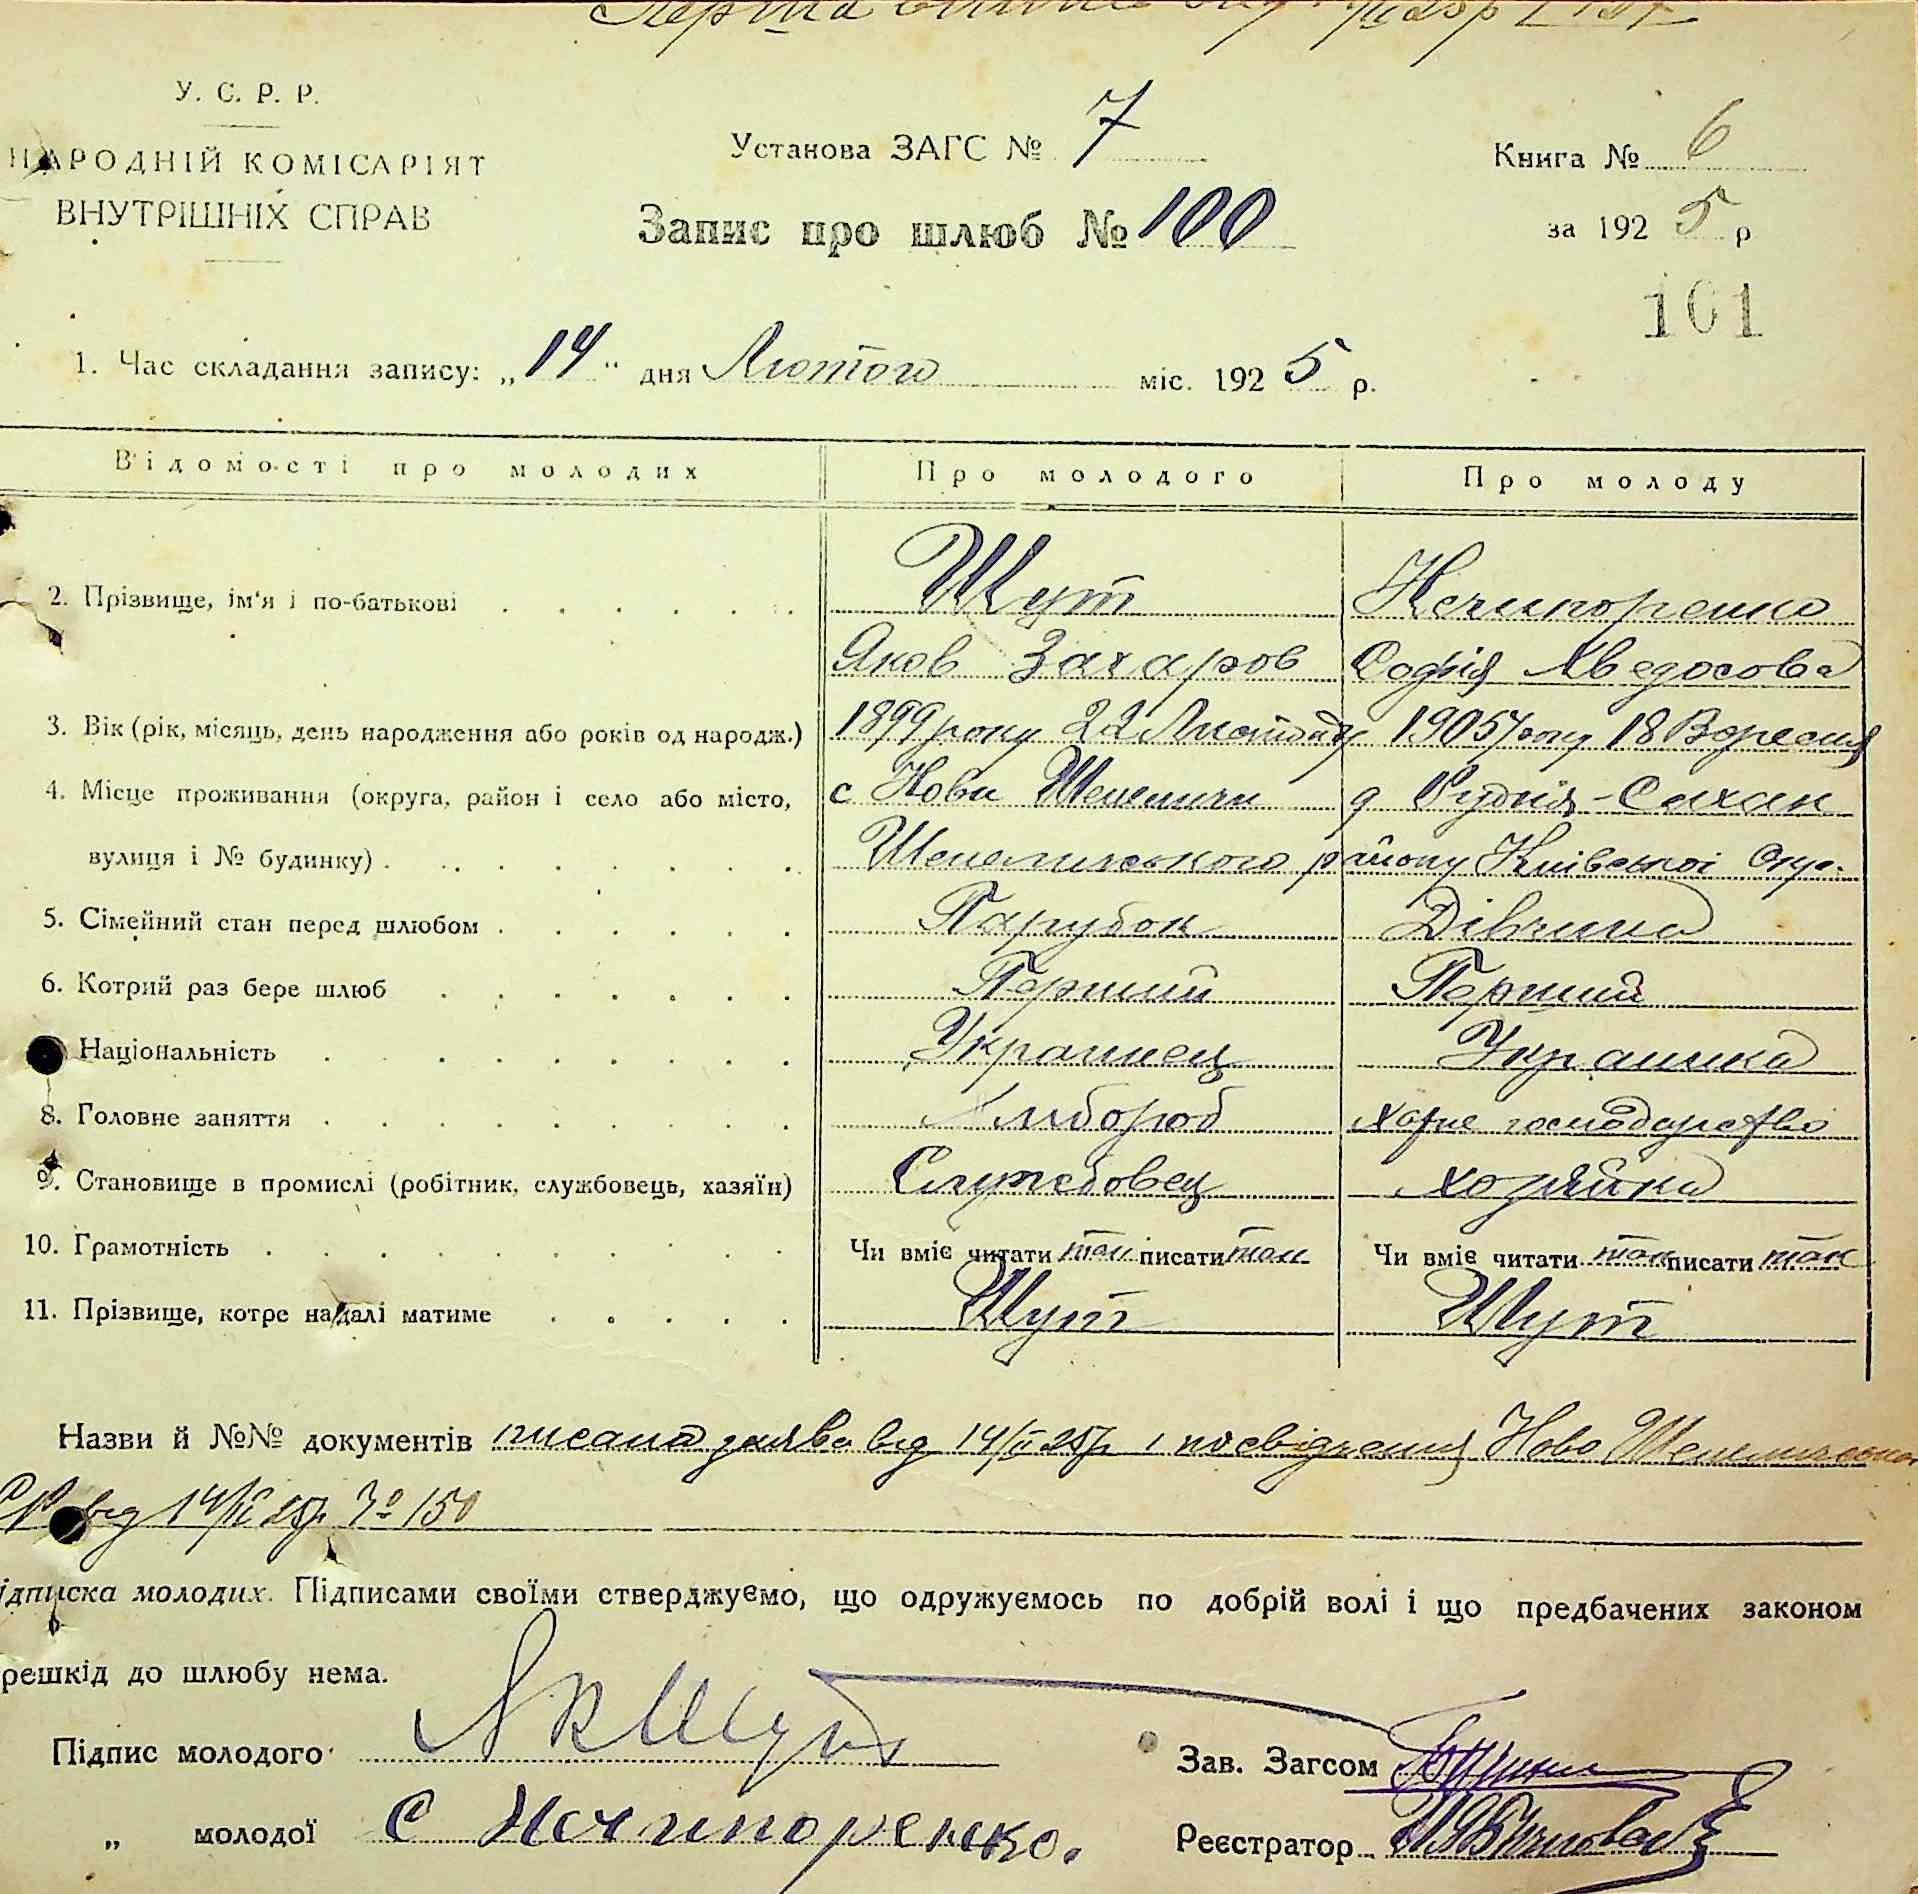 Перша
У. С. Р. Р.
НАРОДНІЙ КОМІСАРІЯТ
ВНУТРІШНІХ СПРАВ
Установа ЗАГС № 7
Книга № 6
Запис про шлюб № 100
за 1925 р
101
1. Час складання запису: „14“ дня Лютого міс. 1925 р.
Відомості про молодих Про молодого Про молоду
2. Прізвище, ім'я і по-батькові Шут Нечипоренко
Яков Захаров Софія Хведосова
3. Вік (рік, місяць, день народження або років од народж.) 1899 року 22 Листопаду 1905 року 18 Вересня
4. Місце проживання (округа, район і село або місто, с Нови Шепеличи д Рудня-Сахан
вулиця і № будинку) Шепелицького району Київської Окр.
5. Сімейний стан перед шлюбом Парубок Дівчина
6. Котрий раз бере шлюб Перший Перший
Національність Украинец Украинка
8. Головне заняття Хлібороб господарство
9. Становище в промислі (робітник, службовець, хазяїн) Службовец хозяйка
10. Грамотність Чи вміє читати так писати так Чи вміє читати так писати так
11. Прізвище, котре надалі матиме Шут Шут
Назви й №№ документів писана заява від 14/II 25р і посвідчення Ново
від 14/II 25р. № 150
ідписка молодих. Підписами своїми стверджуємо, що одружуємось по добрій волі і що предбачених законом
решкід до шлюбу нема.
Підпис молодого Як Шут
Зав. Загсом
„ молодої С Нечипоренко.
Реєстратор